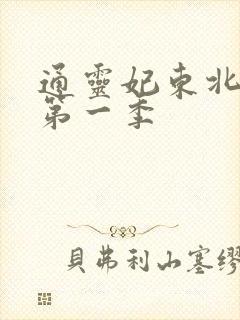 通靈妃東北
第一季
貝弗利山寨繆